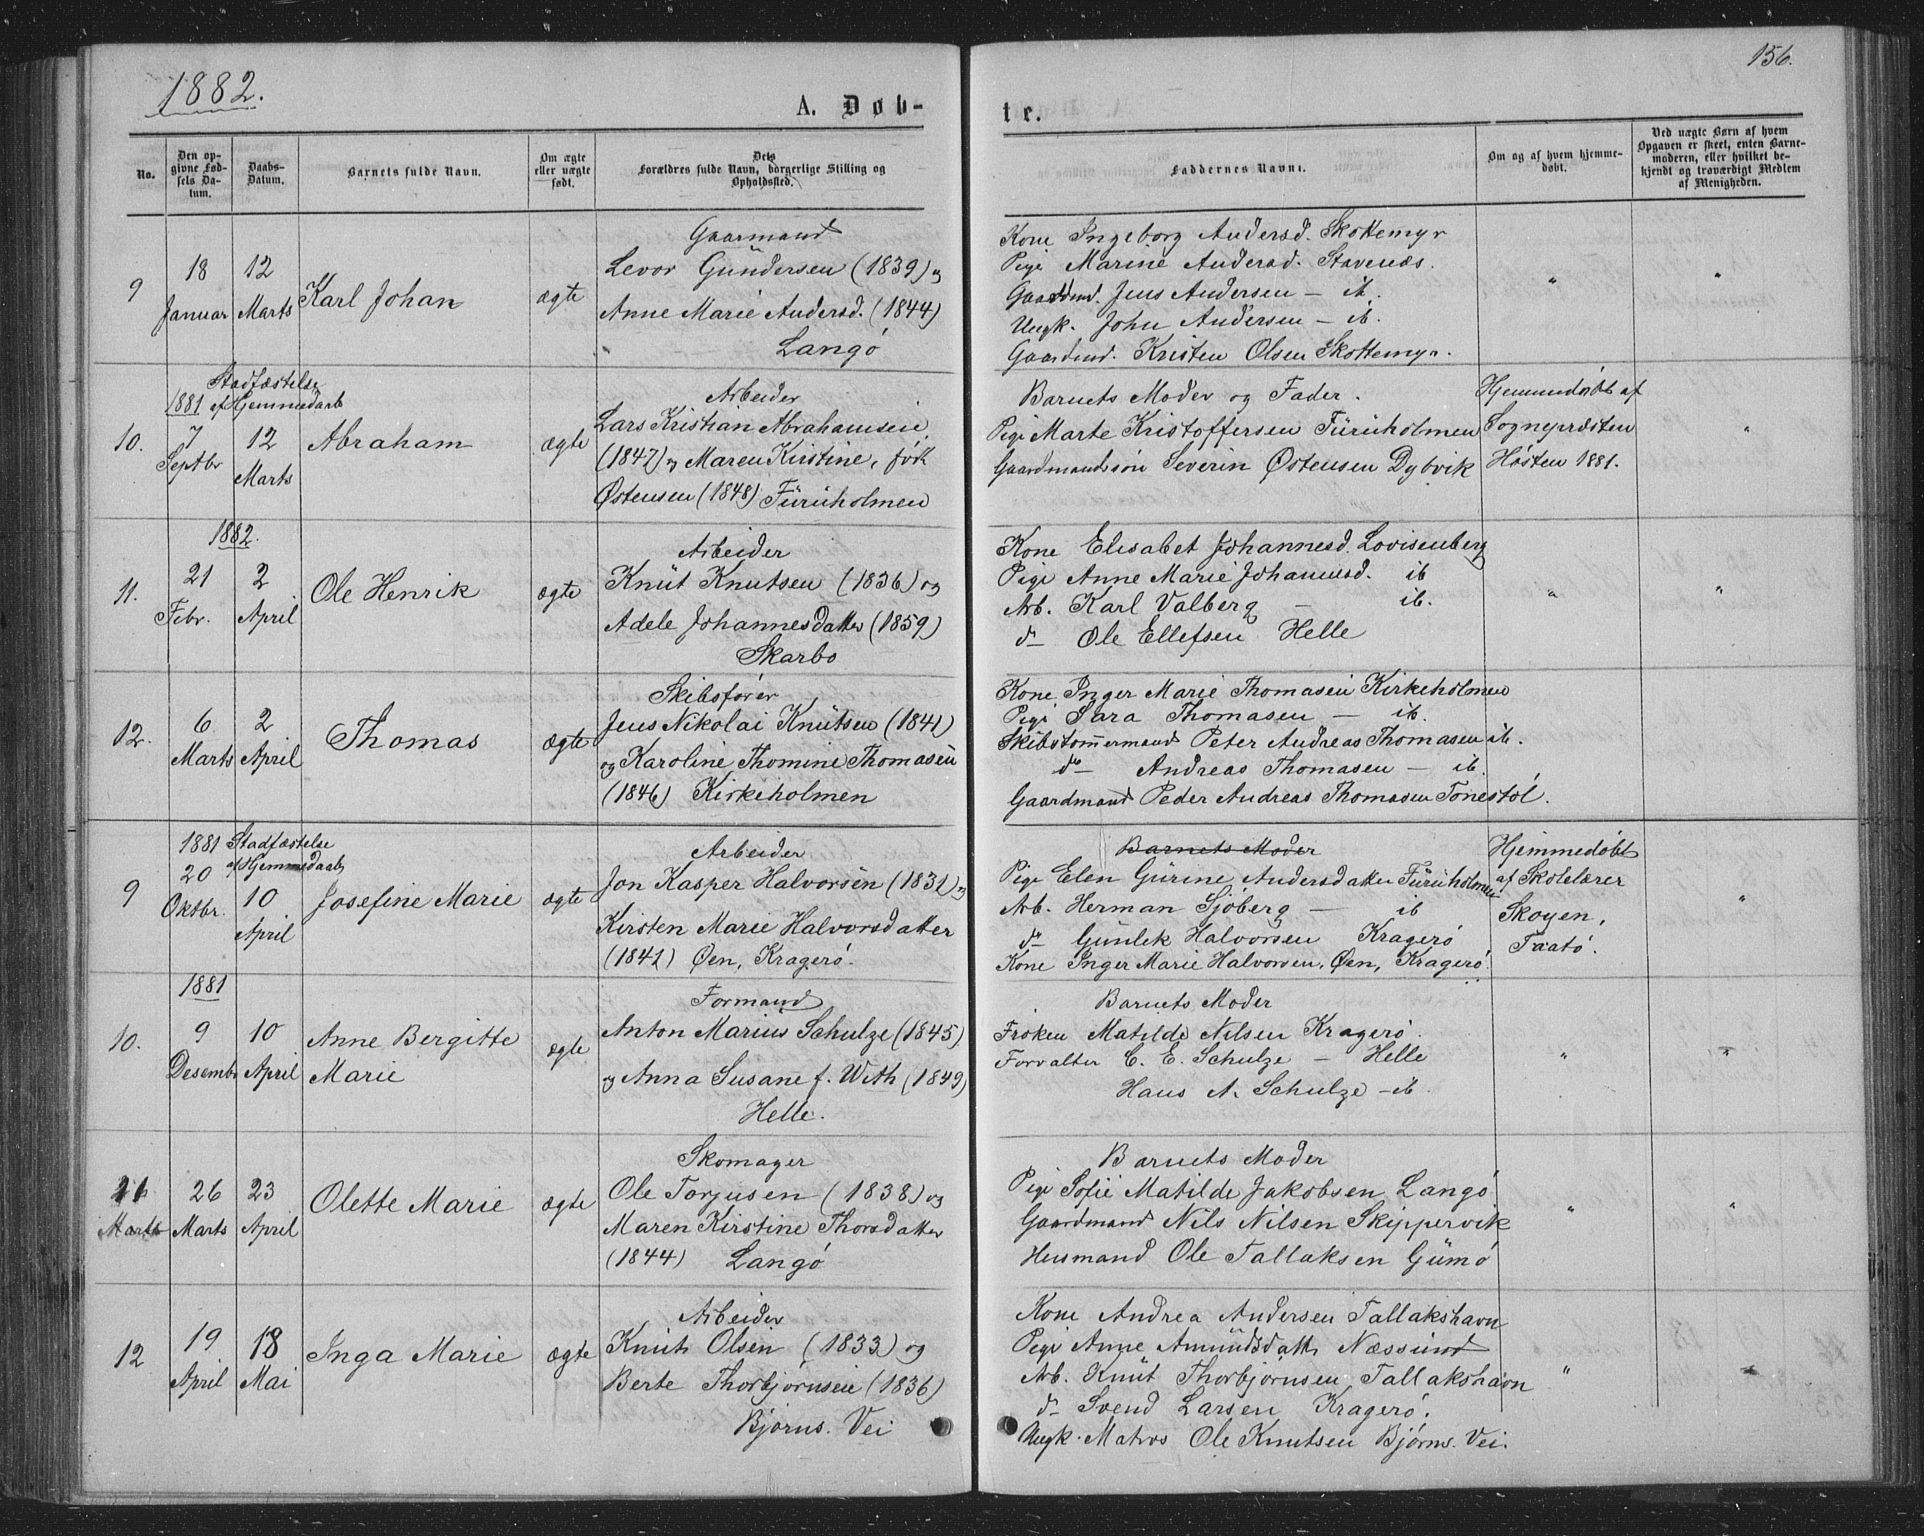 1882.
156.
A. Døb-
te.
No.
Den op-
givne Fød-
sels Da-
tum.
Daabs-
Datum.
Barnets fulde Navn.
Om ægte
eller uægte
født.
Dets
Forældres fulde Navn, borgerlige Stilling og
Opholdssted.
Faddernes Navne.
Om og af hvem hjemme-
døbt.
Ved uægte Børn af hvem
Opgaven er skeet, enten Barne-
moderen, eller hvilket be-
kjendt og troværdigt Medlem
af Menigheden.
9
18
Januar
12
Marts
Karl Johan
ægte
Gaarmand
Levor Gundersen (1839) og
Anne Marie Andersd. (1844)
Langø
Kone Ingeborg Andersd. Skottemyr
Pige Marine Andersd. Stavenæs.
Gaardmd. Jens Andersen — ib.
Ungk. John Andersen — ib.
Gaardmd. Kristen Olsen Skottemyr.
"
"
10.
Stadfæstelse
1881 af Hjemmedaab
7
Septbr
12
Marts
Abraham
ægte
Arbeider
Lars Kristian Abrahamsen
(1847) og Maren Kirstine, født
Østensen (1848) Furuholmen
Barnets Moder og Fader.
Pige Marte Kristoffersen Furuholmen
Gaardmandssøn Severin Østensen Dybvik
Hjemmedøbt af
Sognepræsten
Høsten 1881.
"
1882.
11.
21
Febr.
2
April
Ole Henrik
ægte
Arbeider
Knut Knutsen (1836) og
Adele Johannesdatter (1859)
Skarbo
Kone Elisabet Johannesd. Lovisenberg
Pige Anne Marie Johannesd. ib
Arb. Karl Valberg — ib.
do Ole Ellefsen Helle
"
"
12.
6
Marts
2
April
Thomas
ægte
Skibsfører
Jens Nikolai Knutsen (1841)
og Karoline Thomine Thomasen
(1846) Kirkeholmen
Kone Inger Marie Thomasen Kirkeholmen
Pige Sara Thomasen — ib.
Skibstømmermand Peter Andreas Thomasen ib.
do — Andreas Thomasen — ib.
Gaardmand Peder Andreas Thomasen Tonestøl.
9
1881 Stadfæstelse
af Hjemmedaab
20
Oktbr.
10
April
Josefine Marie
ægte
Arbeider
Jon Kasper Halvorsen (1831) og
Kirsten Marie Halvorsdatter
(1841) Øen, Kragerø.
Barnets Moder
Pige Elen Gurine Andersdatter Furuholmen
Arb. Herman Sjøberg — ib
do Gunlek Halvorsen Kragerø
Kone Inger Marie Halvorsen, Øen, Kragerø.
Hjemmedøbt
af Skolelærer
Skoyen,
Taatø.
"
1881
10.
9
Desembr
10
April
Anne Bergitte
Marie
ægte
Formand
Anton Marius Schulze (1845)
og Anna Susane f. With (1849)
Helle.
Barnets Moder
Frøken Matilde Nilsen Kragerø.
Forvalter C. E. Schulze — Helle
Hans A. Schulze — ib.
"
"
11
Marts
26
Marts
23
April
Olette Marie
ægte
Skomager
Ole Torjusen (1838) og
Maren Kirstine Thorsdatter
(1844) Langø
Barnets Moder
Pige Sofie Matilde Jakobsen Langø
Gaardmand Nils Nilsen Skippervik
Husmand Ole Tallaksen Gumø
"
"
12
19
April
18
Mai
Inga Marie
ægte
Arbeider
Knut Olsen (1833) og
Berte Thorbjørnsen (1836)
Bjørns. Vei
Kone Andrea Andersen Tallakshavn
Pige Anne Amundsdatt. Næssund
Arb. Knut Thorbjørnsen, Tallakshavn
do Svend Larsen Kragerø.
Ungk. Matros Ole Knutsen Bjørns. Vei.
"
"